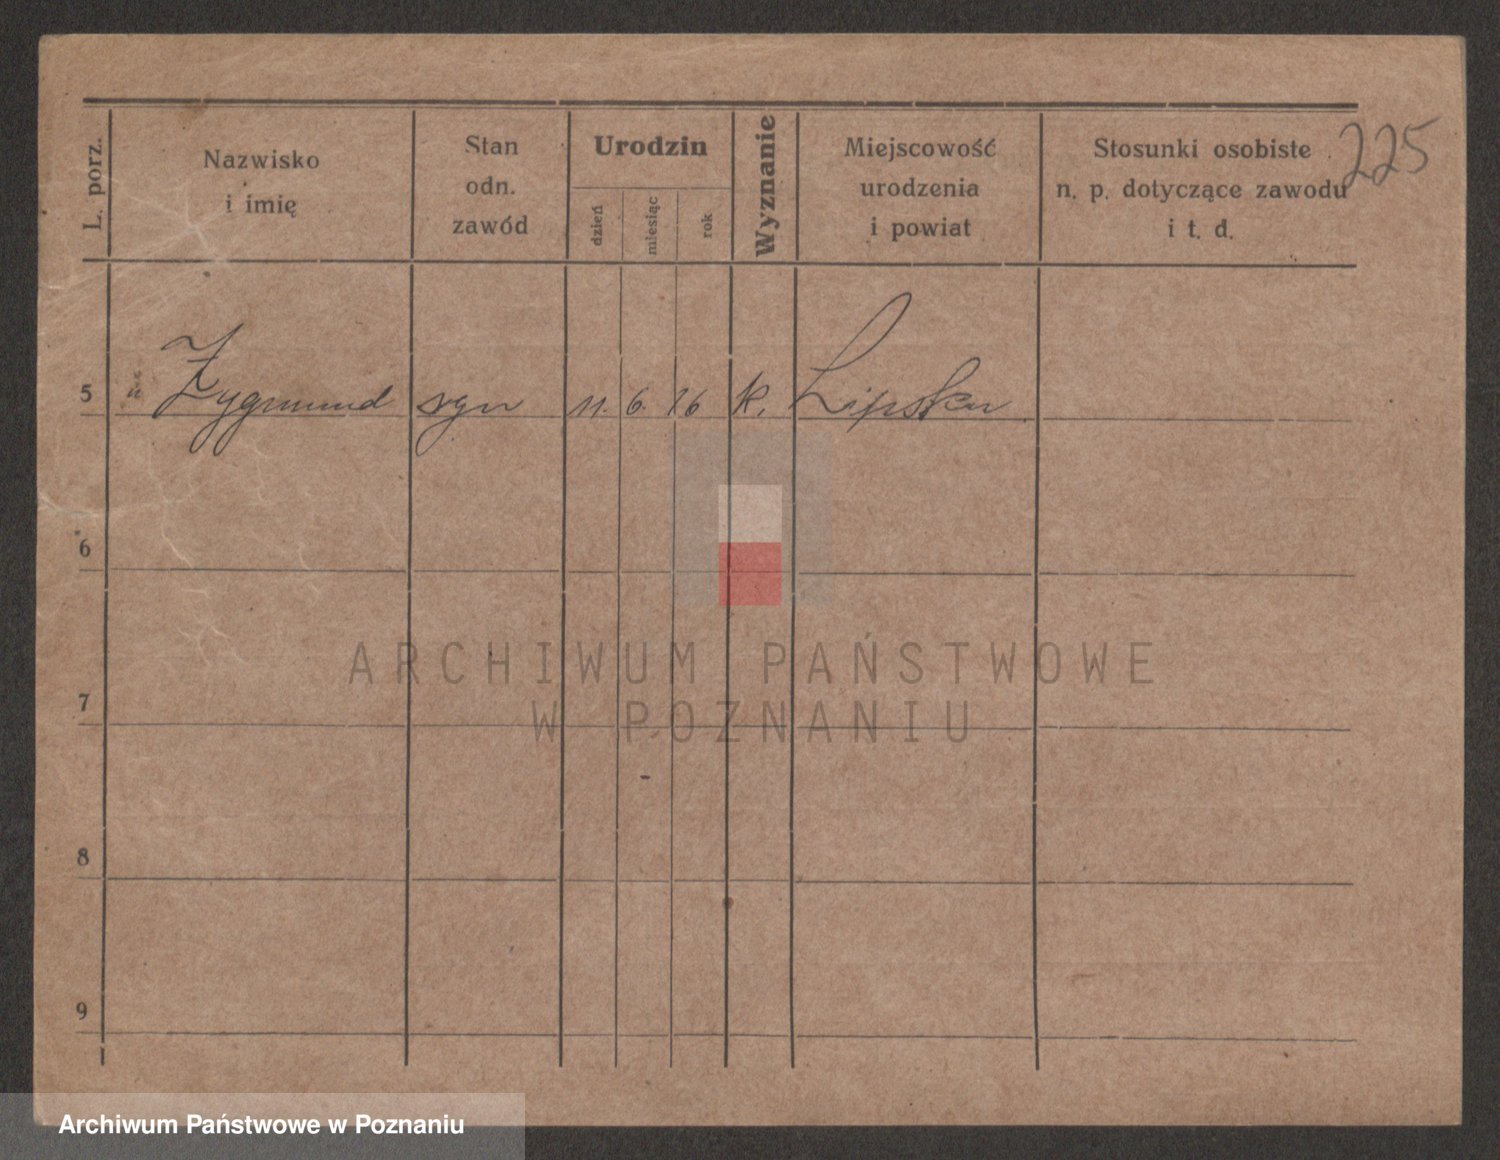 225
L. porz.
Nazwisko
i imię
Stan
odn.
zawód
Urodzin
dzień
miesiąc
rok
Wyznanie
Miejscowość
urodzenia
i powiat
Stosunki osobiste
n. p. dotyczące zawodu
i t. d.
5 Zygmund syn 11. 6. 26 k.
6
7
8
9
ARCHIWUM PAŃSTWOWE
W POZNANIU
Archiwum Państwowe w Poznaniu